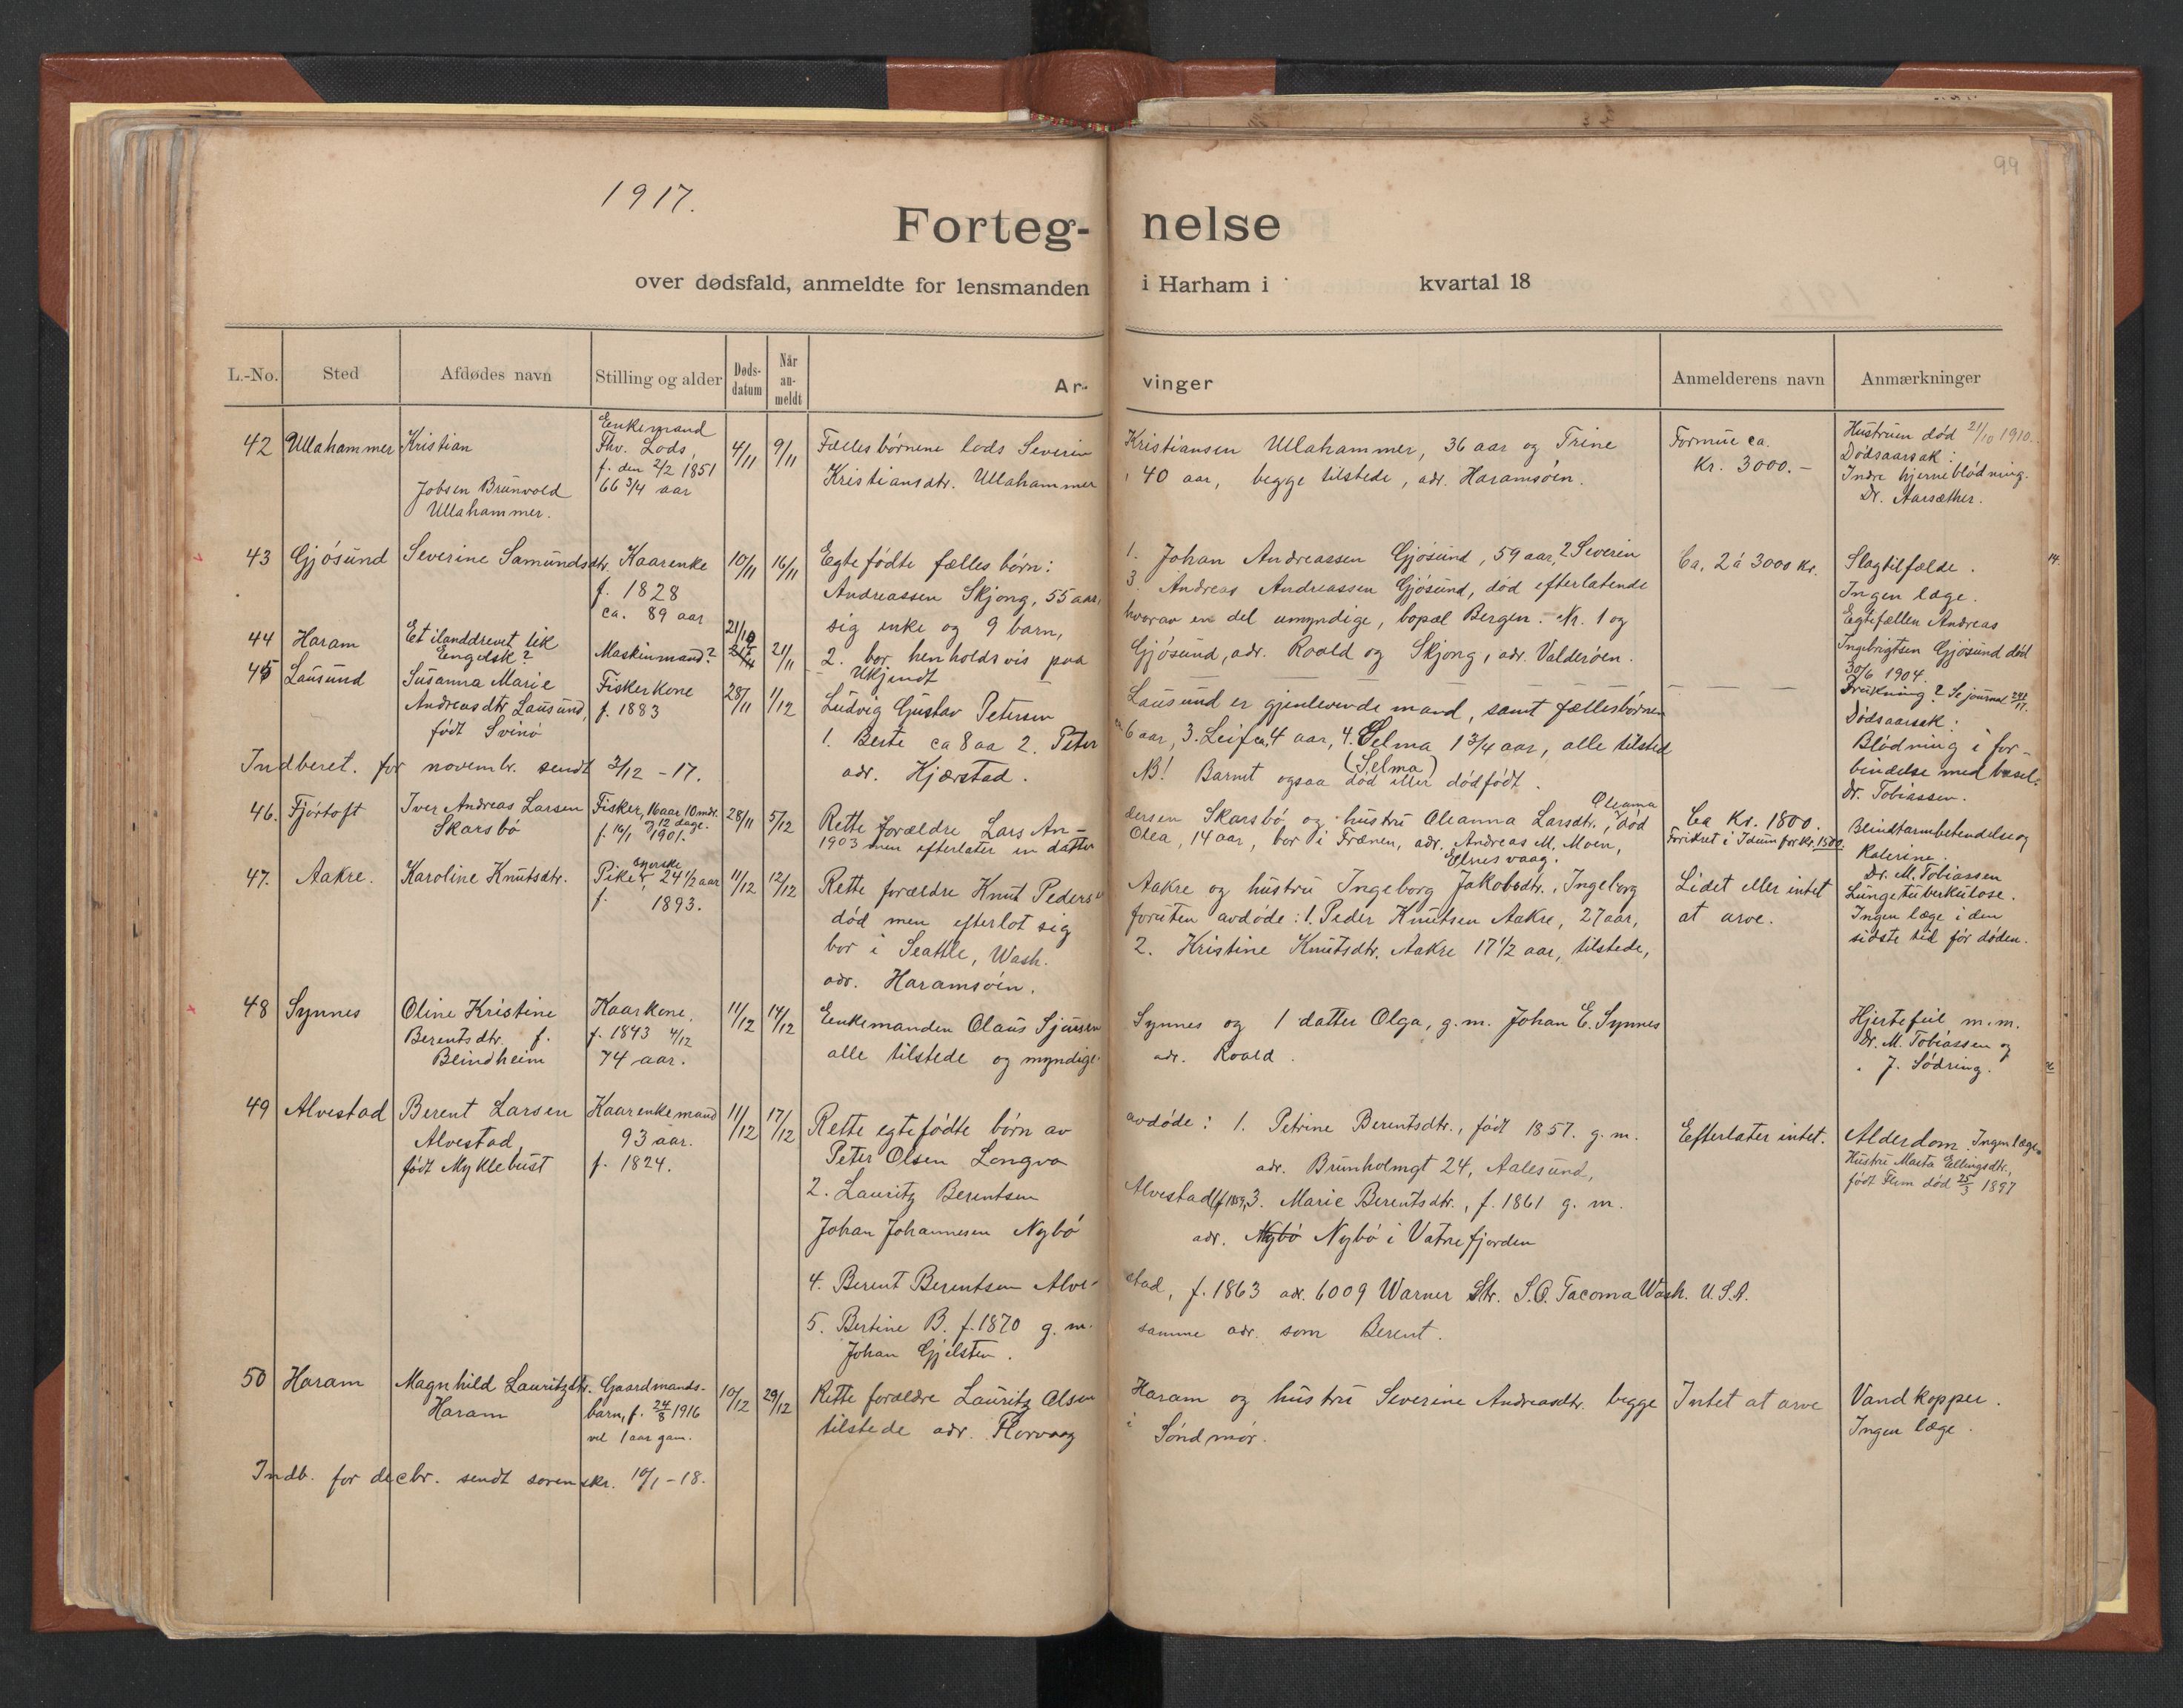 1917.
99
Forteg- nelse
over dødsfald, anmeldte for lensmanden i Harham i kvartal 18
L.-No. Sted Afdødes navn Stilling og alder Døds-datum Når an-meldt Ar- vinger Anmelderens navn Anmærkninger
42 Ullahammer Kristian Jobsen Brunvold Ullahammer.
Enkemand
Fhv. Lods,
f. den 2/2 1851
66 3/4 aar
4/11 9/11
Fællesbørnene lods Severin Kristiansen Ullahammer, 36 aar og Trine
Kristiansdtr. Ullahammer, 40 aar, begge tilstede, adr. Haramsöen.
Formue ca.
Kr. 3000.-
Hustruen död 21/10 1910.
Dödsaarsak:
Indre hjerneblödning.
Dr. Aarsæther.
43 Gjösund Severine Samundsdtr. Kaarenke
f. 1828
ca. 89 aar
10/11 16/11
Egtefödte fælles börn: 1. Johan Andreassen Gjösund, 59 aar, 2 Severin
Andreassen Skjong, 55 aar, 3 Andreas Andreassen Gjösund, död efterlatende
sig enke og 9 barn, hvorav en del umyndige, bopæl Bergen. Nr. 1 og
2. bor henholdsvis paa Gjösund, adr. Roald og Skjong, adr. Valderöen.
Ca. 2 á 3000 Kr.
Slagtilfælde.
Ingen læge.
Egtefællen Andreas
Ingebrigtsen Gjösund död
30/6 1904.
44 Haram Et ilanddrevet lik
Engelsk?
Maskinmand?
21/10
21/11
Ukjendt
— — —
Drukning? Se journal
45 Lausund Susanna Marie
Andreasdtr Lausund,
födt Svinö
Fiskerkone
f. 1883
28/11 1/12
Ludvig Gustav Petersen Lausund er gjenlevende mand, samt fællesbörnene
1. Berte ca 8 aa 2. Peter 6 aar, 3. Leif ca. 4 aar, 4. Selma 1 3/4 aar, alle tilsted
(Selma)
adr. Hjærstad. NB! Barnet ogsaa död eller dödfödt.
Dödsaarsak:
Blödning i for-
bindelse med barsel.
Dr. Tobiassen.
Indberet. for novembr. sendt 3/12 -17.
46. Fjörtoft Iver Andreas Larsen
Skarsbö
Fisker, 16 aar 10 mdr.
og 12 dage.
f. 16/1 1901.
28/11 5/12
Oleanna
Rette forældre Lars An-dersen Skarsbö og hustru Oleanna Larsdtr., död
1903 men efterlater en datter Olea, 14 aar, bor i Frænen, adr. Andreas M. Moen,
Elnesvaag.
Ca Kr. 1800.
Forsikret i Idun for Kr. 1500.
Blindtarmbetendelse og
Dr. M. Tobiassen
47. Aakre. Karoline Knutsdtr.
syerske
Pike, 24 1/2 aar
f. 1893.
11/12 12/12
Rette forældre Knut Pedersen Aakre og hustru Ingeborg Jakobsdtr. Ingeborg
död men efterlot sig foruten avdöde: 1. Peder Knutsen Aakre, 27 aar,
bor i Seattle, Wash. 2. Kristine Knutsdtr. Aakre 17 1/2 aar, tilstede,
adr. Haramsöen.
Lidet eller intet
at arve.
Lungetuberkulose.
Ingen læge i den
sidste tid för döden.
48 Synnes Oline Kristine
Berentsdtr. f.
Blindheim
Kaarkone.
f. 1843 4/12
74 aar.
11/12 14/12
Enkemanden Olaus Sjursen Synnes og 1 datter Olga, g.m. Johan E. Synnes
alle tilstede og myndige. adr. Roald.
Hjertefeil m.m.
Dr. M. Tobiassen og
" J. Södring.
49 Alvestad Berent Larsen
Alvestad,
födt Myklebust
Kaarenkemand
93 aar.
f. 1824.
11/12 17/12
Rette egtefödte börn av avdöde: 1. Petrine Berentsdtr., födt 1857. g. m.
Peter Olsen Longva adr. Brunholmgt 24, Aalesund,
2. Lauritz Berentsen Alvestad (f 1859, 3. Marie Berentsdtr., f. 1861 g. m.
Johan Johannesen Nybö adr. Nybö Nybö i Vatnefjorden
4. Berent Berentsen Alve-stad, f. 1863 adr. 6009 Warner Str. S.O. Tacoma Wash. U.S.A.
5. Bertine B. f. 1870 g. m. samme adr. som Berent.
Johan Gjelsten.
Efterlater intet.
Alderdom. Ingen læge.
Hustru Marta Ellingsdtr.,
födt Flem död 25/3 1897
50 Haram Magnhild Lauritzdtr.
Haram
Gaardmands-
barn, f. 24/8 1916
vel 1 aar gam.
10/12 29/12
Rette forældre Lauritz Olsen Haram og hustru Severine Andreasdtr. begge
tilstede adr. Flovaag i Söndmör.
Intet at arve
Vandkopper.
Ingen læge.
Indb. for decbr. sendt sorenskr. 10/1 -18.